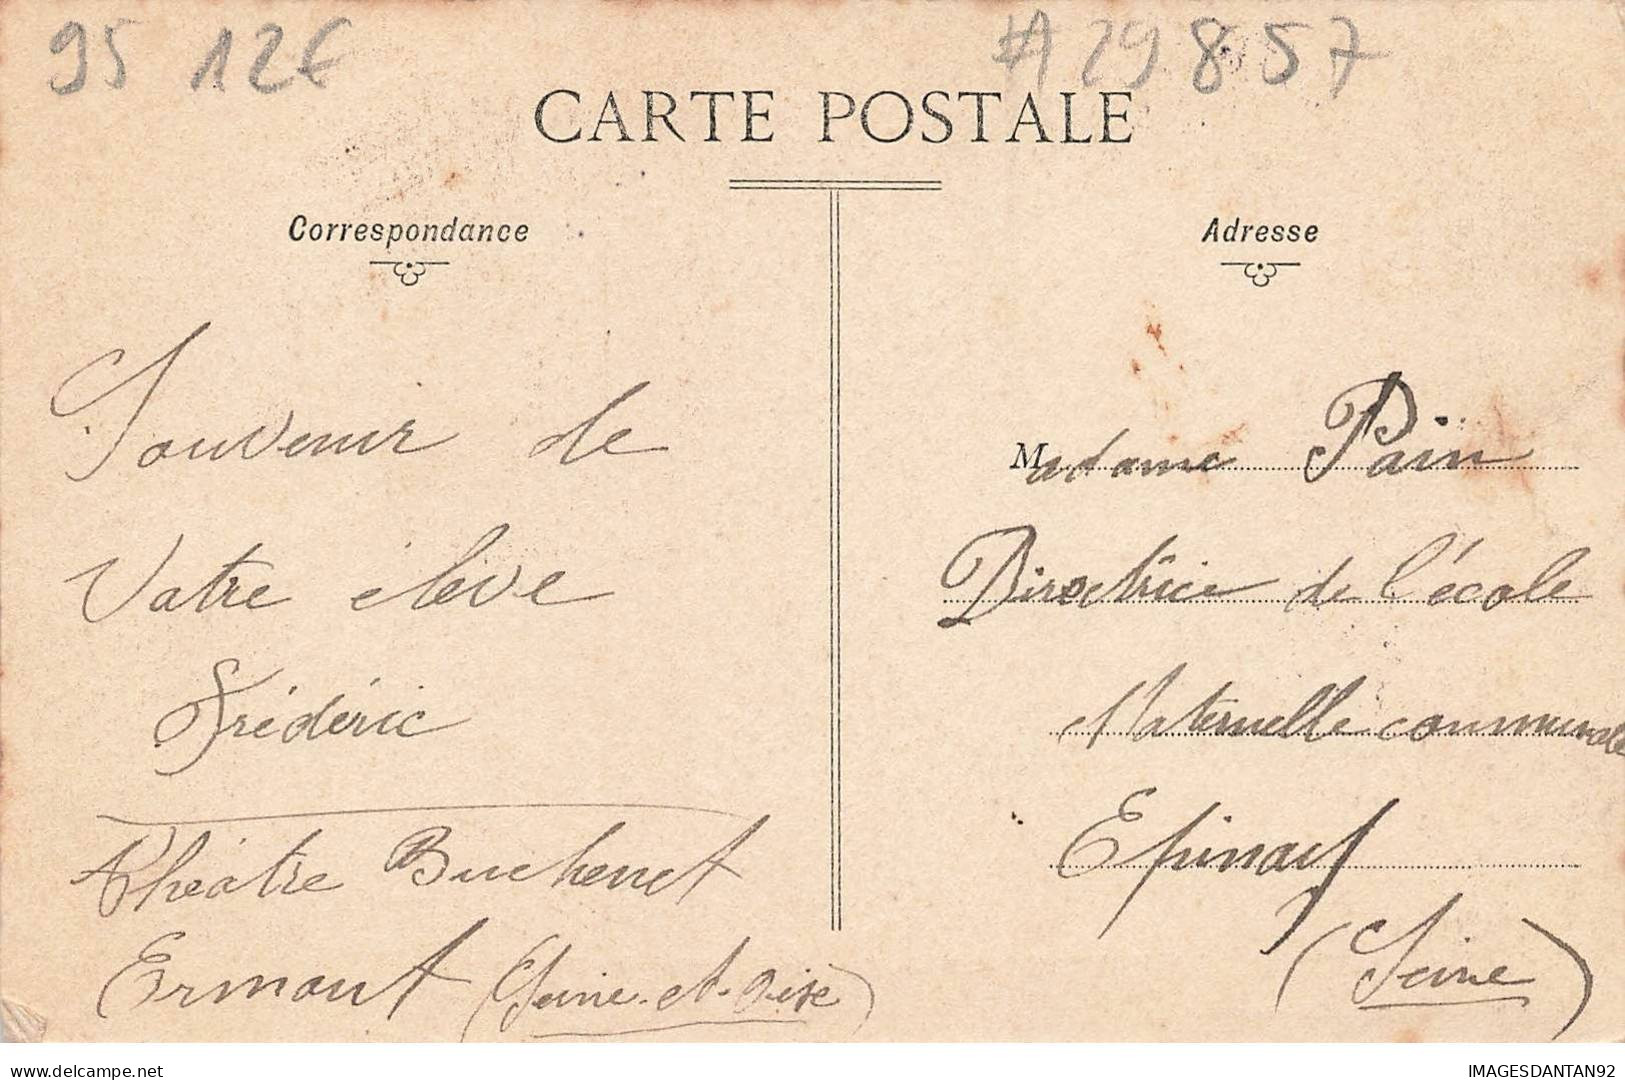 95 12€ #A29857
CARTE POSTALE
Correspondance
Adresse
Souvenir de
Votre élève
Frédéric
Théâtre Buchenet
Ermont (Seine-et-Oise)
Madame Pain
Directrice de l'école
Maternelle communale
Epinay
(Seine)
delcampe.net
IMAGESDANTAN92